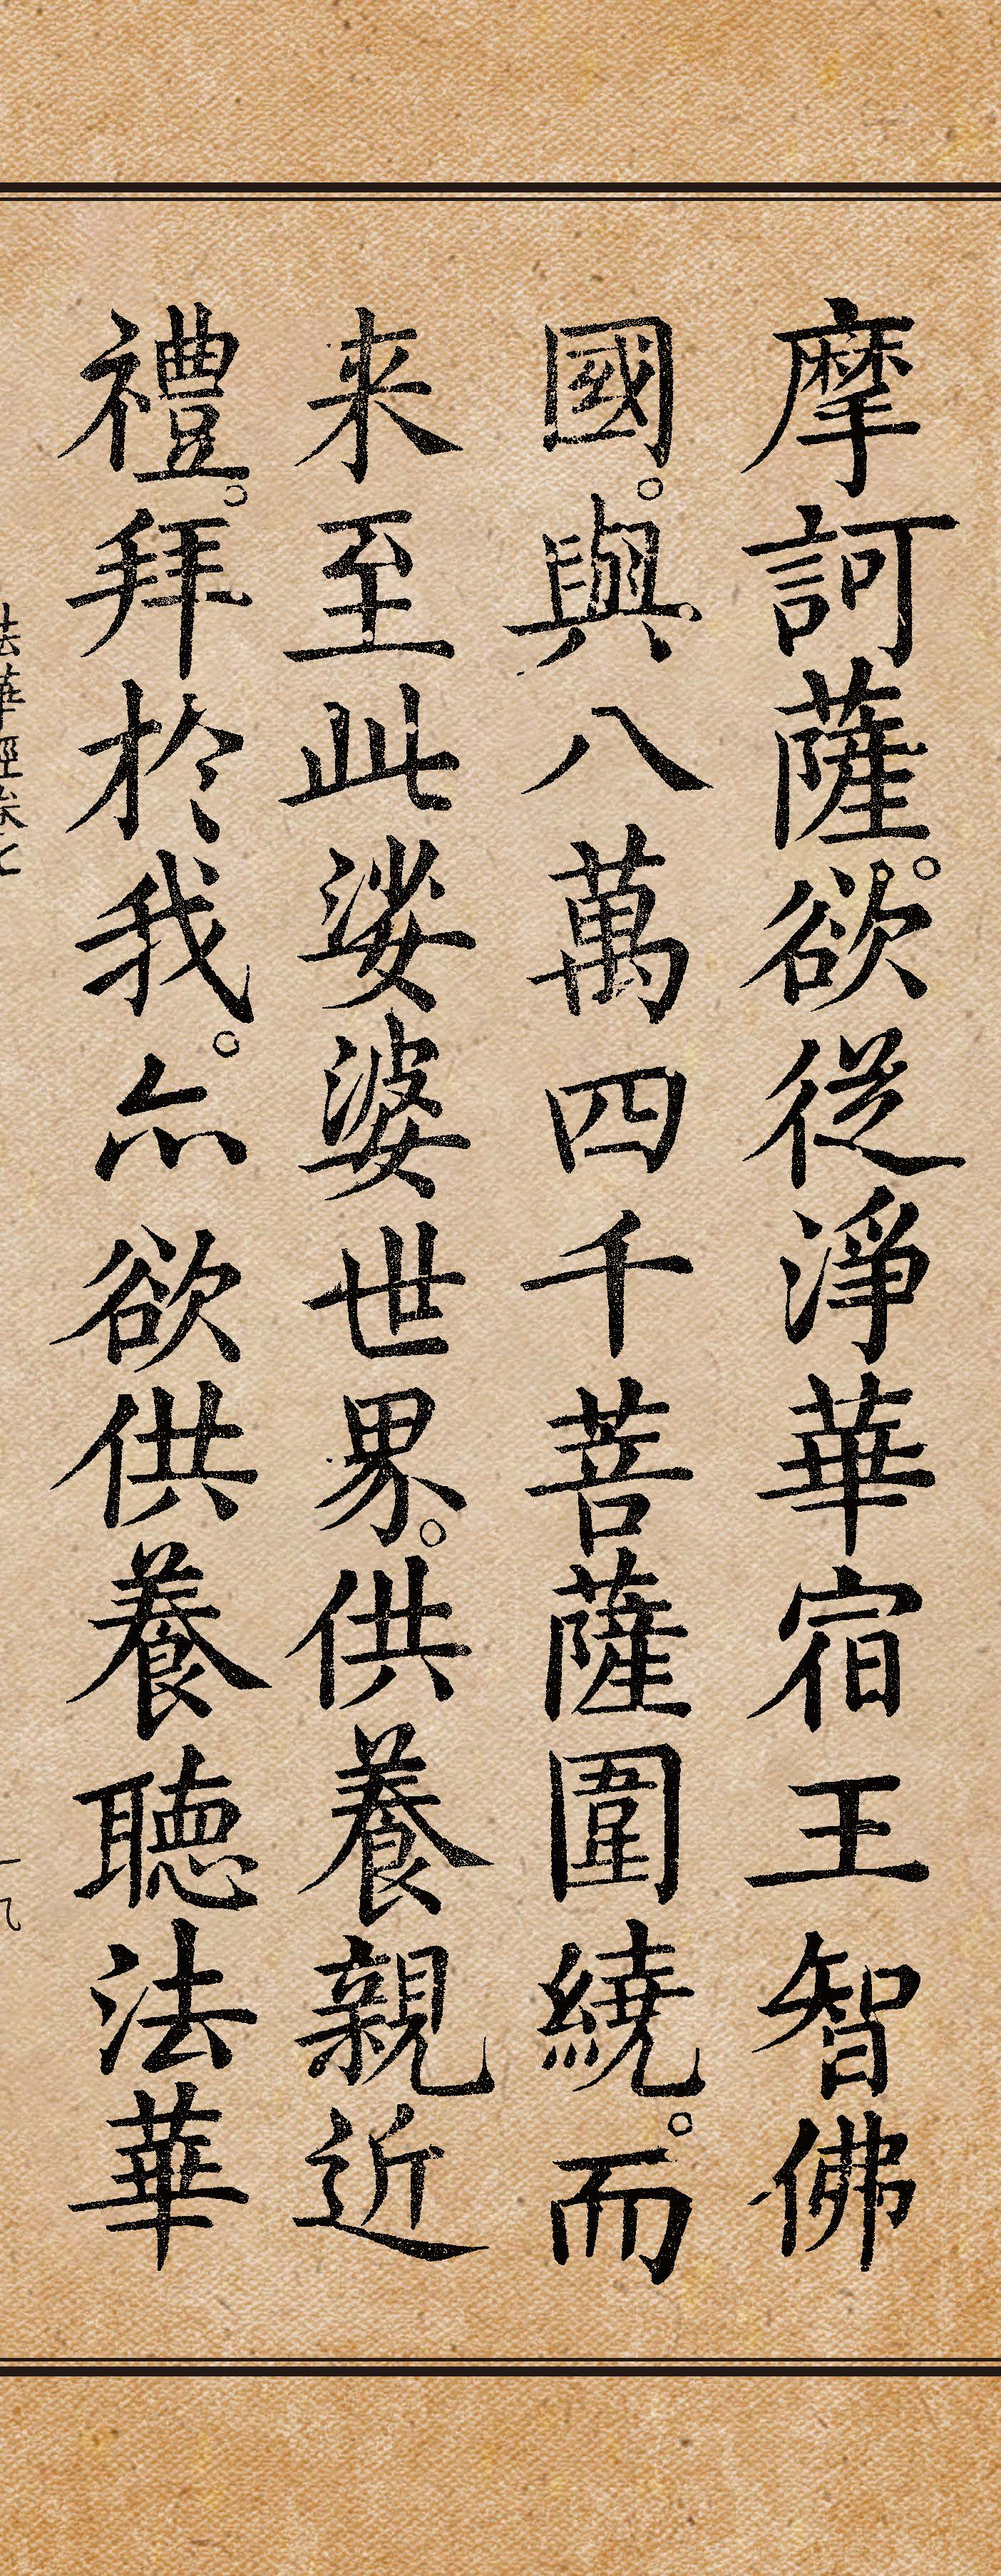 摩訶薩。欲從淨華宿王智佛
國。與八萬四千菩薩圍繞。而
来至此娑婆世界。供養親近
禮。拜於我。亦欲供養聽法華